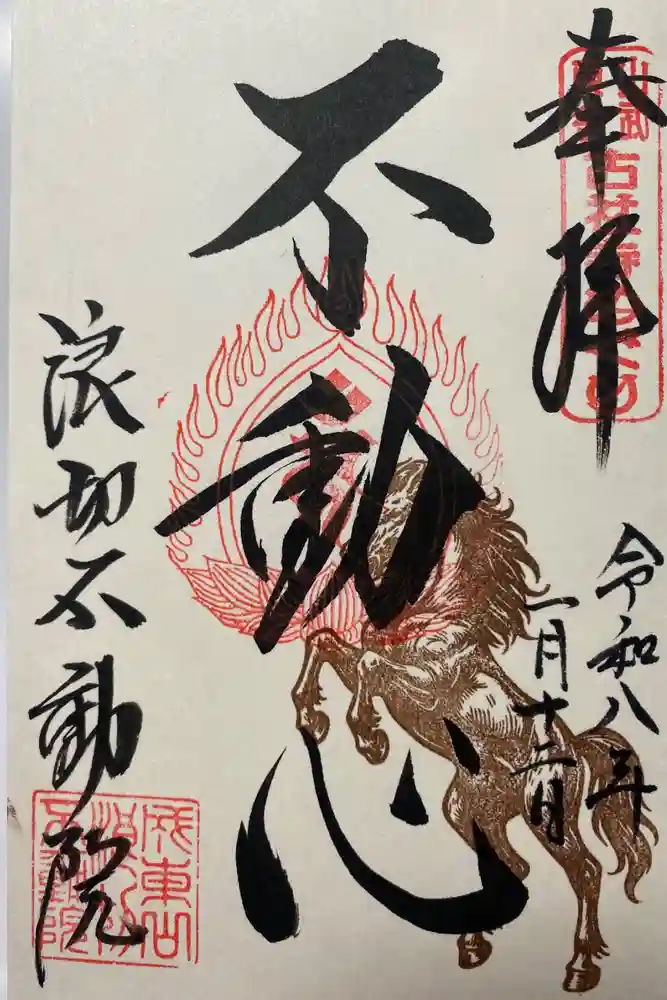 奉拝
令和八年
一月十二日
不動心
浪切不動院